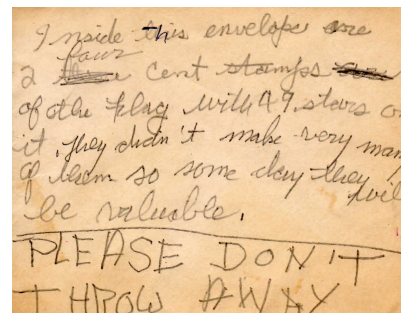 Inside this envelope are
four
2 cent stamps
of the flag with 49 stars o
it. They didn't make very man
of them so some day they wil
be valuable.
PLEASE DON'T
THROW AWAY